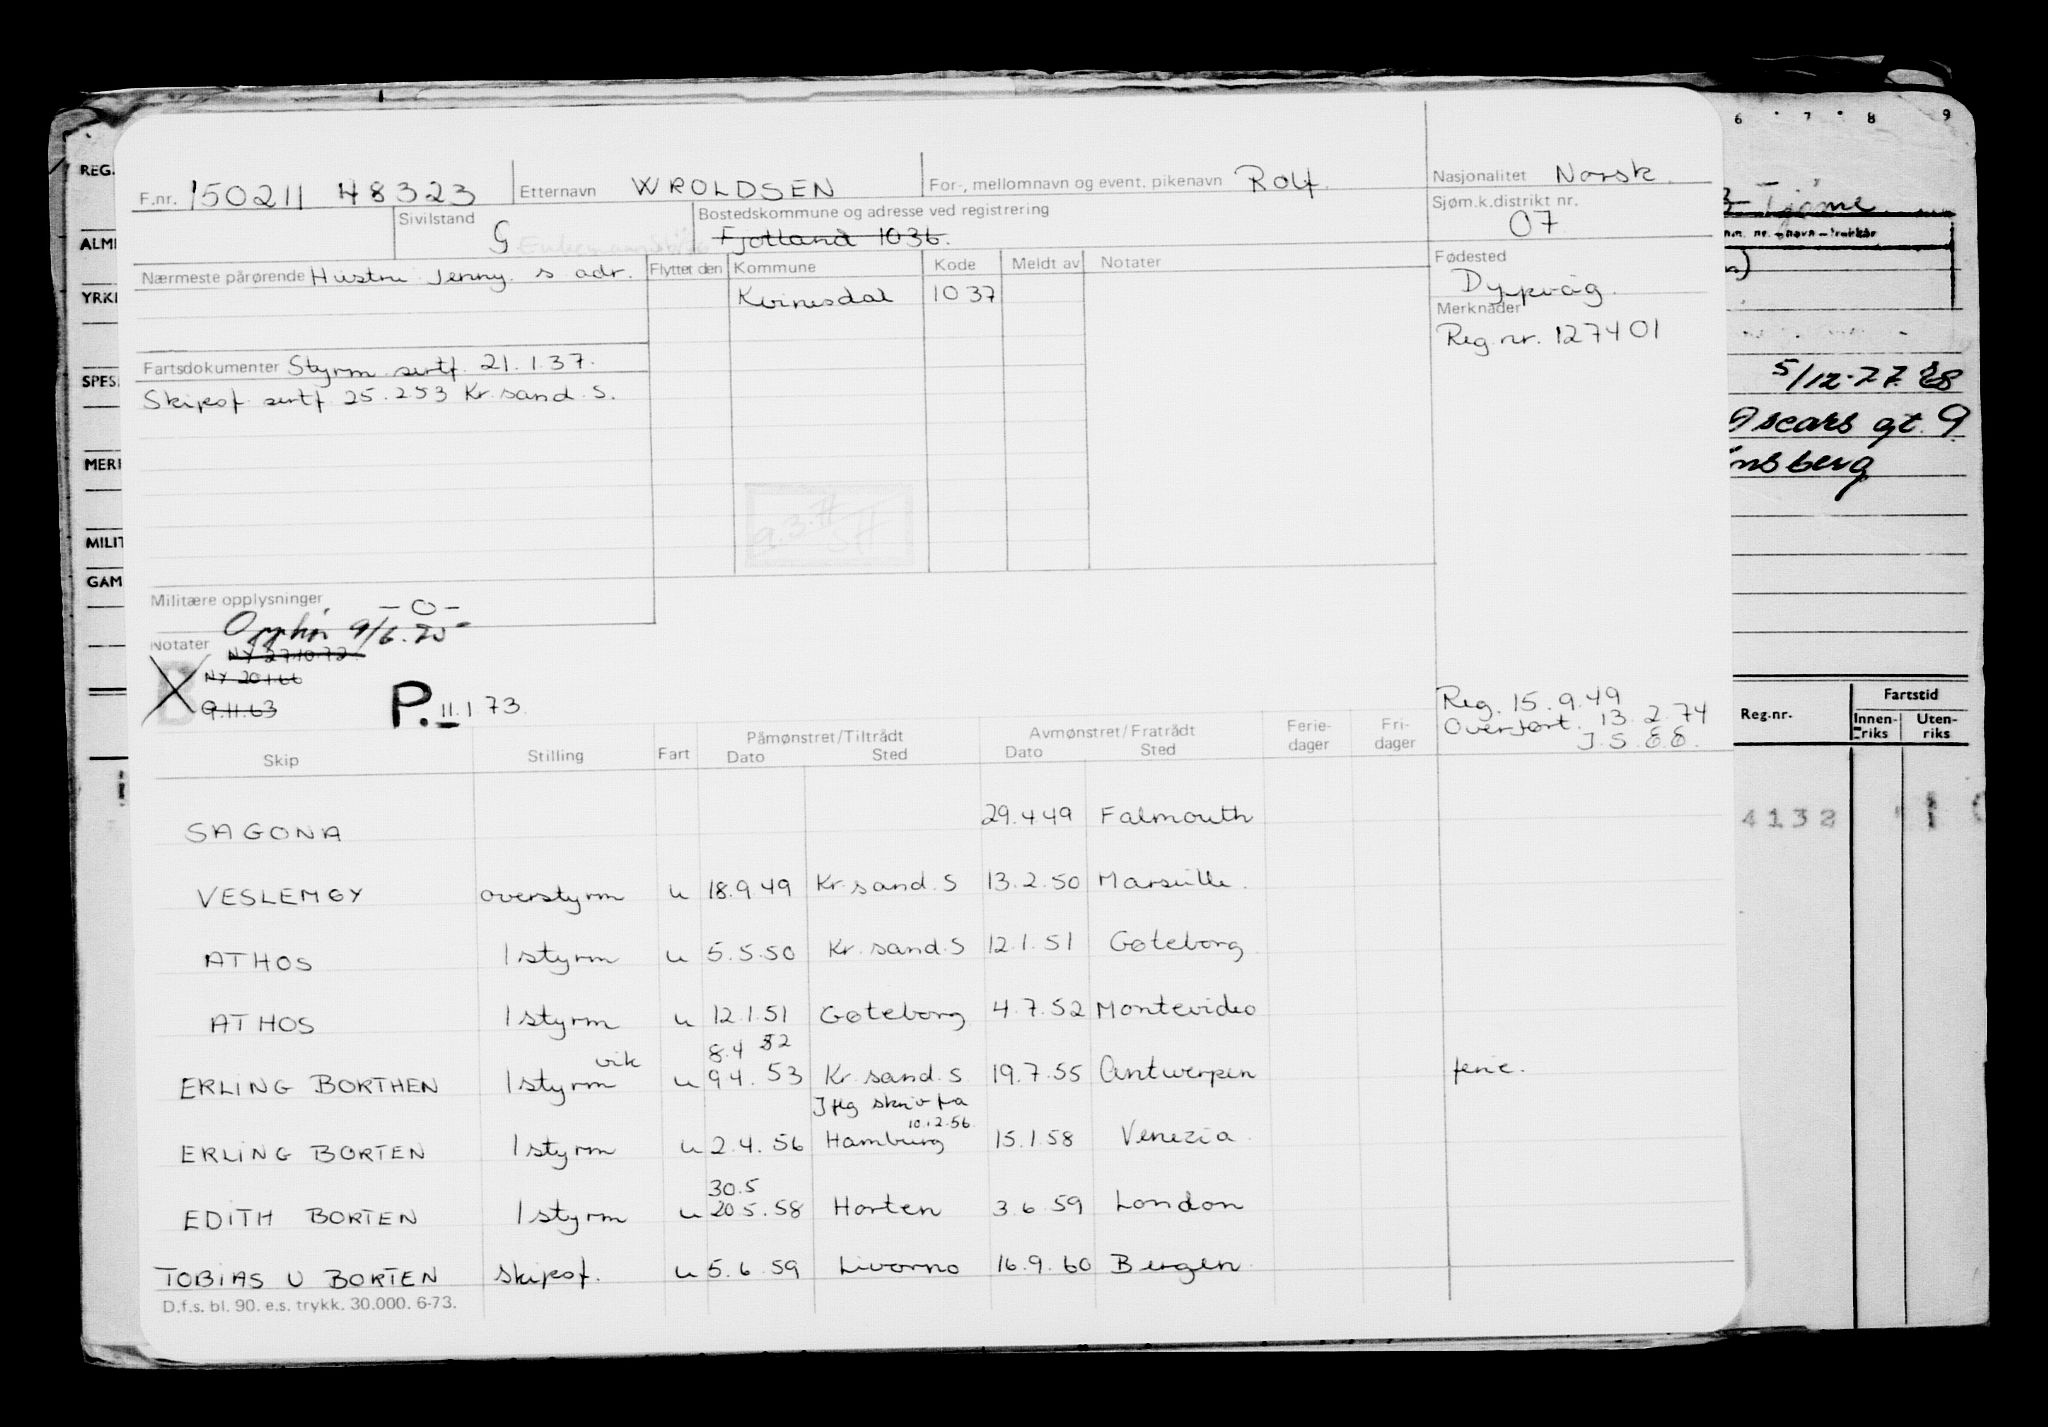 F.nr. 150211 48323 Etternavn WROLDSEN For-, mellomnavn og event. pikenavn Rolf. Nasjonalitet Norsk.
Sivilstand G Bostedskommune og adresse ved registrering Fjotland 1036. Sjøm.k.distrikt nr. 07
Nærmeste pårørende Hustru Jenny. s adr. Flyttet den Kommune Kode Meldt av Notater Fødested
Kvinesdal 1037 Dypvåg.
Merknader
Reg. nr. 127401
Fartsdokumenter Styrm. sertf. 21.1.37.
Skipsf. sertf. 25.2.53 Kr.sand.S.
Militære opplysninger -0-
Opphør 9/6.75
Notater
NY 27.10.72.
NY 20.1.66
9.11.63
P. 11.1.73.
Reg. 15.9.49
Overført. 13.2.74
Skip Stilling Fart Påmønstret/Tiltrådt Dato Sted Avmønstret/Fratrådt Dato Sted Ferie-dager Fri-dager
SAGONA 29.4.49 Falmouth
VESLEMØY overstyrm u 18.9.49 Kr.sand.S 13.2.50 Marseille.
ATHOS 1 styrm u 5.5.50 Kr.sand.S 12.1.51 Gøteborg
ATHOS 1 styrm u 12.1.51 Gøteborg 4.7.52 Montevideo
vik 8.4 52
ERLING BORTHEN 1 styrm u 9.4.53 Kr.sand.S. 19.7.55 Antwerpen ferie.
Iflg skriv fra
10.2.56.
ERLING BORTEN 1 styrm u 2.4.56 Hamburg 15.1.58 Venezia.
30.5
EDITH BORTEN 1 styrm u 20.5.58 Horten 3.6.59 London
TOBIAS U BORTEN skipsf. u 5.6.59 Livorno 16.9.60 Bergen.
D.f.s. bl. 90. e.s. trykk. 30.000. 6-73.
REG.
ALM
YRK
SPES.
MERI
MILIT
GAM
6 7 8 9
Tjøme
5/12-77
Oscars gt. 9
nsberg
Reg.nr. Fartstid
Innen-riks Uten-riks
4132